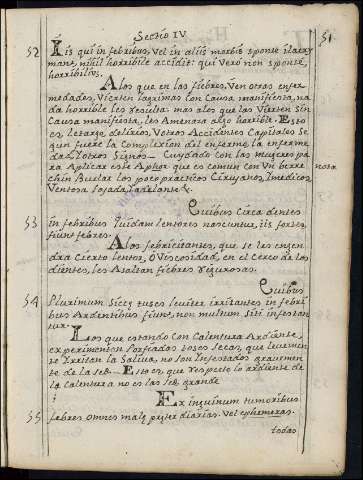 Sectio IV.
51
52 Iis qui in febribus, vel in aliis morbis sponte ilacry
mant, nihil horribile accidit: qui vero non sponte,
horribilius.
Alos que en las fiebres, Ven otras enfer
medades, Vierten lagrimas con Causa manifiesta, na
da horrible les resulta: mas alos que las Vierten Sin
Causa manifiesta, les Amenaza algo horrible. Esto
es, letargo, delirios, Votros Accidentes Capitales Se
gun fuere la Complexion del enfermo, la enferme
dad, Votros Signos
Cuydado con las mugeres pa
ra Aplicar este Aphor. que es comun Con Un berre
chin Burlar los poco practicos Cirujanos, Imedicos
nota
Ventosa
53 Quibus Circa dentes
in febribus quidam lentores noscuntur, iis fortes
fiunt febres.
Alos febricitantes, que se les engen
dra Cierto lentor, o Viscosidad, en el Cerco de los
dientes, les Asaltan fiebres rigurosas.
54 Quibus
Plurimum Sicce tuses leviter irritantes in febri
bus Ardentibus fiunt, non multum siti infestan
tur.
Los que estando Con Calentura Ardiente,
experimentan Porfiadas toses secas, que levemen
te Irritan la Saliva, no son Infestados gravemen
te de la sed. Esto es, que respeto lo ardiente de
la Calentura no es la sed grande
55 Ex inguinum tumoribus
febres omnes male preter diarias, vel ephemeras.
todas